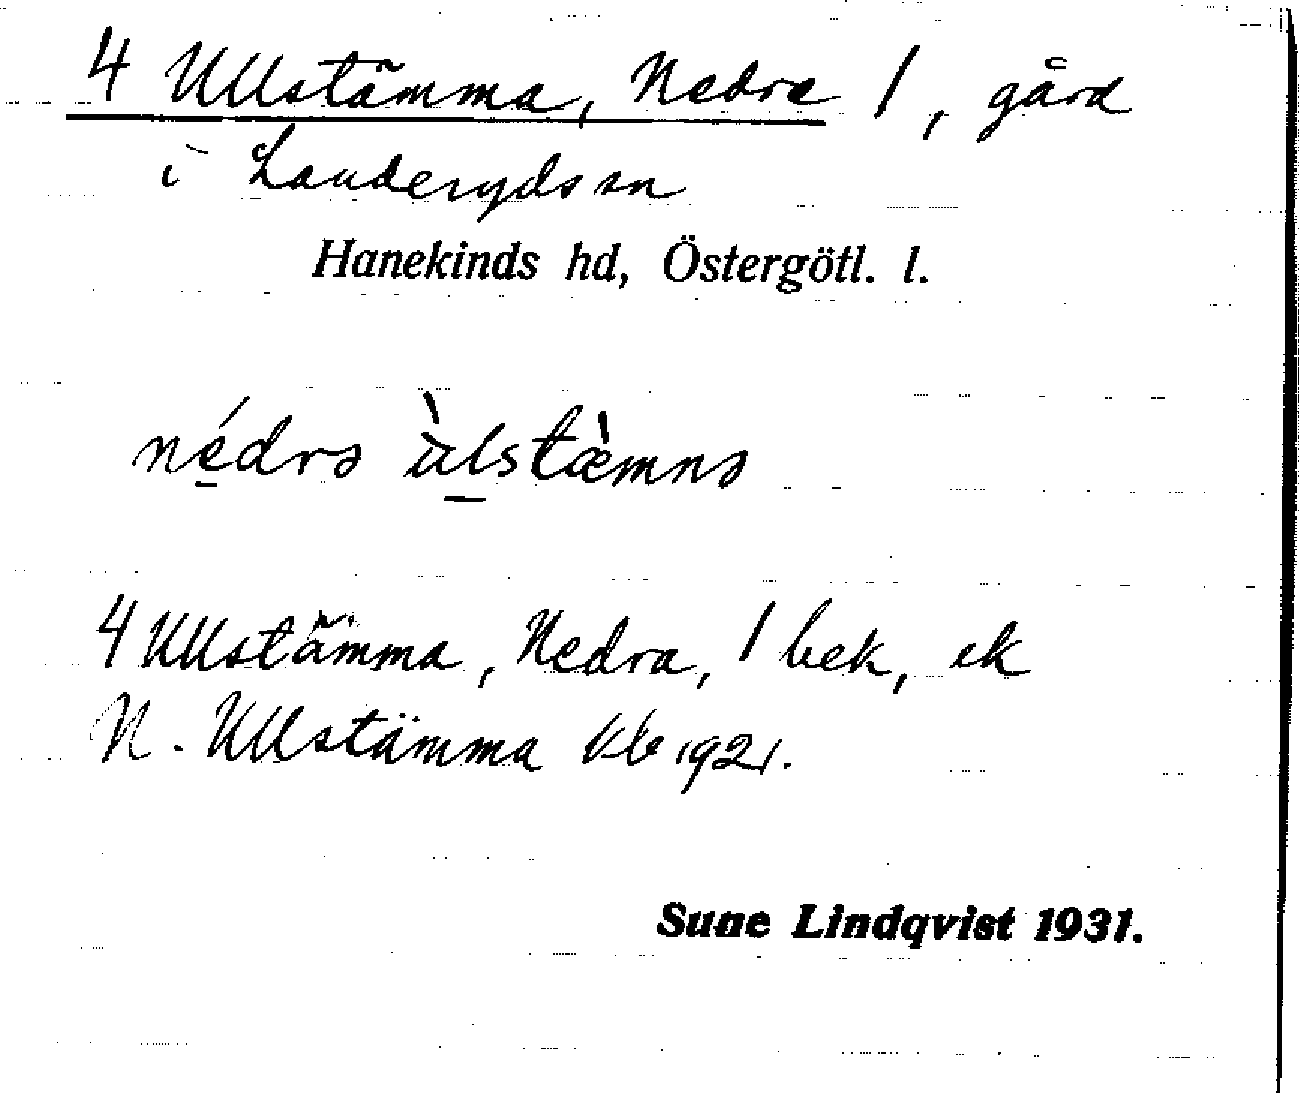 4 Ullstämma, Nedre 1, gård
i Landeryds sn
Hanekinds hd, Östergötl. l.
nédrə ùlstæ̀mnə
4 Ullstämma, Nedra, 1 bek, ek
N. Ullstämma kb 1921.
Sune Lindqvist 1931.